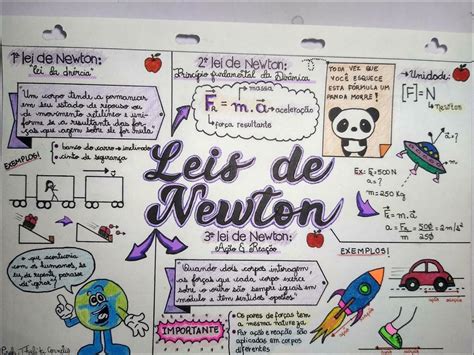 1ª lei de Newton:
"lei da Inércia"
Um corpo tende a permanecer
em seu estado de repouso ou
de movimento retilíneo e uni-
forme se a resultante das for-
ças que agem sobre ele for nula
EXEMPLOS!
• banco do carro → inclinado
• cinto de segurança
• que aconteceria
com os humanos, se
eu, de repente, parasse
de girar?
2ª lei de Newton:
Princípio fundamental da Dinâmica
massa
FR = m.a → aceleração
força resultante
TODA VEZ QUE
VOCÊ ESQUECE
ESTA FÓRMULA UM
PANDA MORRE!
→ Unidade:
[F]=N
Newton
Ex: FR=500N
a=?
m=250Kg
FR=m.a
a=FR=500=2m/s²
m 250
Leis de
Newton
3ª lei de Newton:
Ação & Reação
"Quando dois corpos interagem,
as forças que cada corpo exerce
sobre o outro são sempre iguais em
módulo e têm sentidos opostos"
IMPORTANTE
• Os pares de forças tem
a mesma natureza
• Par ação e reação são
aplicados em corpos
diferentes
EXEMPLOS!
ação
reação